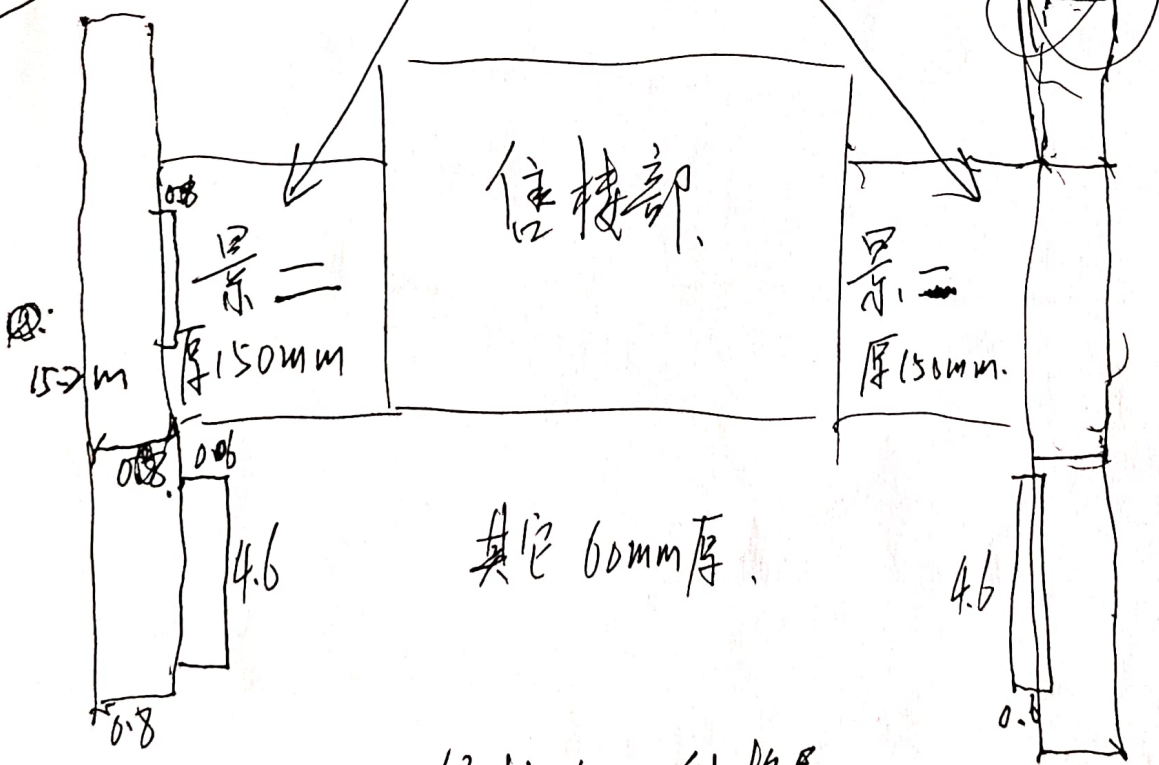 售楼部.
0.8
景二
厚150mm
景一
厚150mm.
0.06
4.6
其它60mm厚.
4.6
0.8